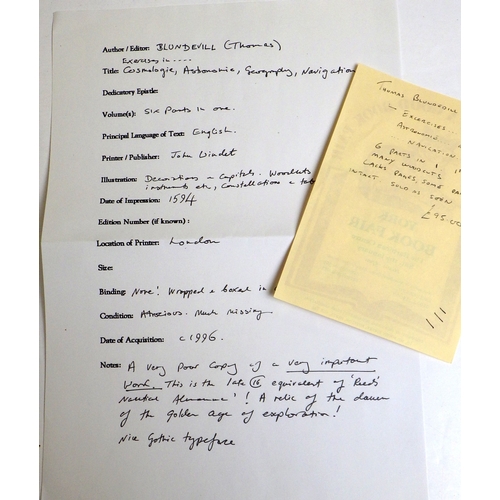 Author / Editor: BLUNDEVILL (Thomas)
Exercises in ....
Title: Cosmologie, Astronomie, Geography, Navigation
Dedicatory Epistle:
Volume(s): Six Parts in one.
Principal Language of Text: English.
Printer / Publisher: John Windet
Illustration: Decorations - Capitals. Woodcuts
instruments etc, Constellations +
Date of Impression: 1594
Edition Number (if known):
Location of Printer: London
Size:
Binding: None! Wrapped + boxed in
Condition: Atrocious. Much missing.
Date of Acquisition: c1996.
Notes: A very poor copy of a very important
work. This is the late 16 equivalent of 'Reeds
Nautical Almanac'! A relic of the dawn
of the golden age of exploration!
Nice Gothic typeface
THOMAS BLUNDEVILL
EXERCISES..
ASTRONOMIE
NAVIGATION
6 PARTS IN 1
MANY WOODCUTS
LACKS PAGES, SOME
INTACT SOLD AS SEEN
£95.00
YORK
BOOK FAIR